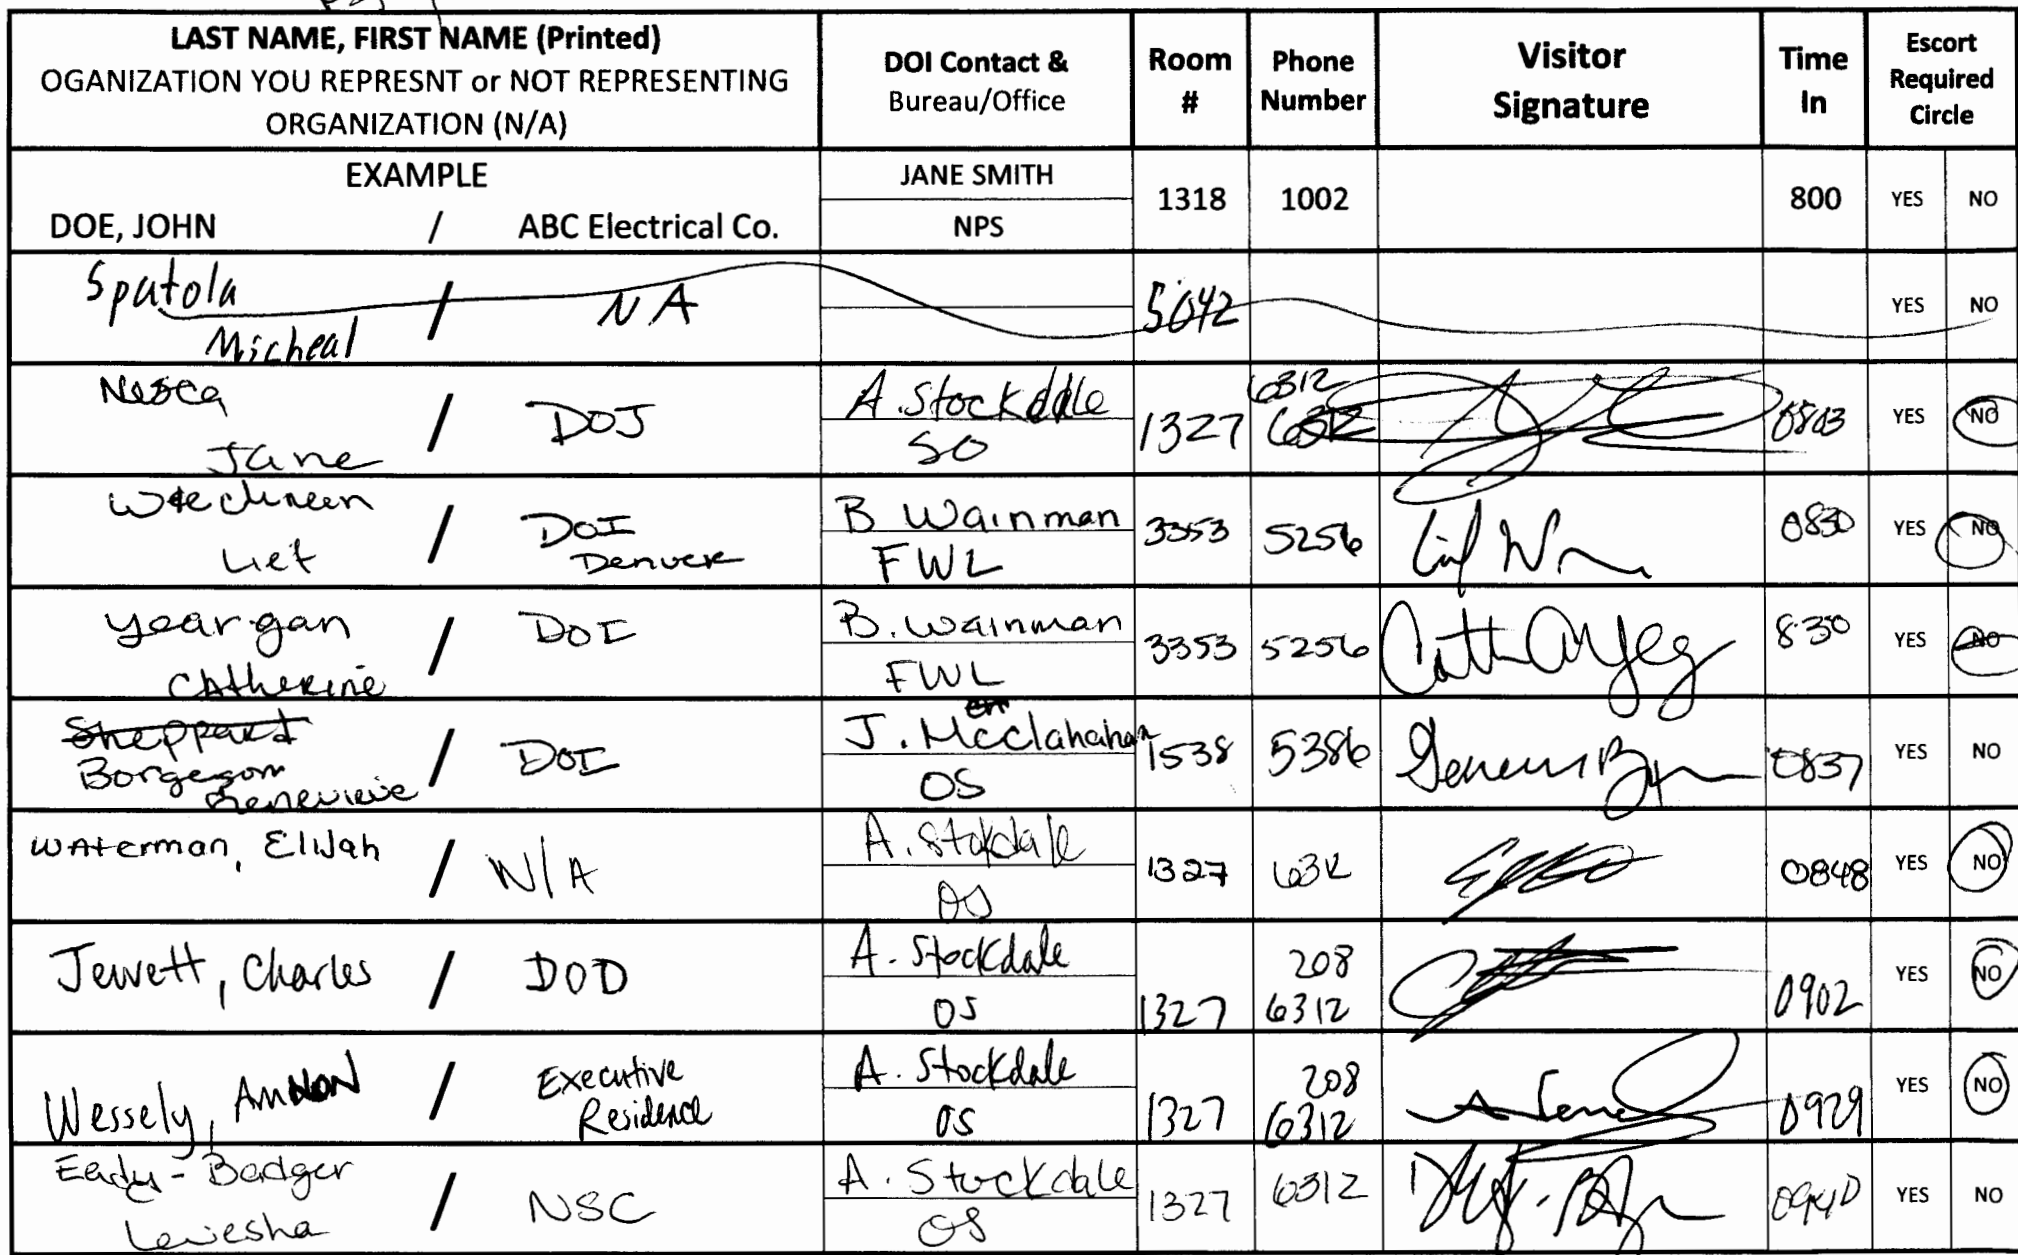 LAST NAME, FIRST NAME (Printed)
OGANIZATION YOU REPRESNT or NOT REPRESENTING
ORGANIZATION (N/A)
DOI Contact &
Bureau/Office
Room
#
Phone
Number
Visitor
Signature
Time
In
Escort
Required
Circle
EXAMPLE
DOE, JOHN / ABC Electrical Co.
JANE SMITH
NPS
1318 1002 800 YES NO
Spatola
Micheal / NA 5042 YES NO
Jane / DOJ
A. Stockdale
SO
1327 6312 0803 YES NO
Liet / DOI
Denver
B Wainman
FWL
3353 5256 0830 YES NO
Yeargan
Catherine / DOI
B. Wainman
FWL
3353 5256 830 YES NO
Sheppard
Borgeson
Genevieve / DOI
J. McClahahan
OS
1538 5386 0837 YES NO
Waterman, Elijah / N/A
A. Stokdale
OS
1327 6312 0848 YES NO
Jewett, Charles / DOD
A. Stockdale
OS
1327 208
6312 0902 YES NO
Wessely, / Executive
Residence
A. Stockdale
OS
1327 208
6312 0929 YES NO
Eady-Badger
Leviesha / NSC
A. Stockdale
OS
1327 6312 0940 YES NO